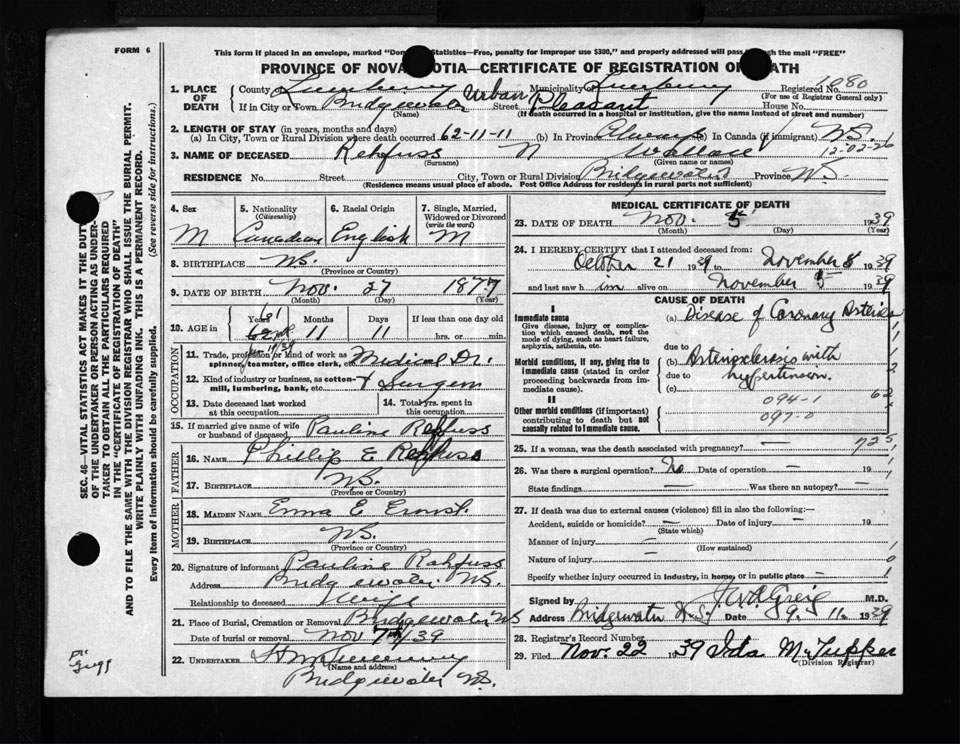 FORM 6
This form if placed in an envelope, marked "Dom Statistics—Free, penalty for improper use $300," and properly addressed will pass through the mail "FREE"
PROVINCE OF NOVA SCOTIA—CERTIFICATE OF REGISTRATION OF DEATH
1. PLACE OF DEATH County Lunenburg Municipality Lunenburg Registered No. 1080
(For use of Registrar General only)
If in City or Town Bridgewater Urban Street Pleasant House No.
(Name) (If death occurred in a hospital or institution, give the name instead of street and number)
2. LENGTH OF STAY (in years, months and days)
(a) In City, Town or Rural Division where death occurred 62-11-11 (b) In Province Always (c) In Canada (if immigrant) N.S.
12-02-26
3. NAME OF DECEASED Rehfuss N Wallace
(Surname) (Given name or names)
RESIDENCE No. Street City, Town or Rural Division Bridgewater Province N.S.
(Residence means usual place of abode. Post Office Address for residents in rural parts not sufficient)
4. Sex M
5. Nationality (Citizenship) Canadian
6. Racial Origin English
7. Single, Married, Widowed or Divorced (write the word) M
8. BIRTHPLACE N.S.
(Province or Country)
9. DATE OF BIRTH Nov. 27 1877
(Month) (Day) (Year)
10. AGE in Years 61 62 Months 11 Days 11 If less than one day old
hrs. or min.
OCCUPATION
11. Trade, profession or kind of work as spinner, teamster, office clerk, etc. Medical Dr.
12. Kind of industry or business, as cotton-mill, lumbering, bank, etc. + Surgeon
13. Date deceased last worked at this occupation
14. Total yrs. spent in this occupation
15. If married give name of wife or husband of deceased Pauline Rehfuss
FATHER
16. Name Phillip E Rehfuss
17. Birthplace N.S.
(Province or Country)
MOTHER
18. Maiden Name Emma E Ernst
19. Birthplace N.S.
(Province or Country)
20. Signature of informant Pauline Rehfuss
Address Bridgewater N.S.
Relationship to deceased Wife
21. Place of Burial, Cremation or Removal Bridgewater NS
Date of burial or removal Nov 7th/39
22. UNDERTAKER
(Name and address)
Bridgewater N.S.
MEDICAL CERTIFICATE OF DEATH
23. DATE OF DEATH Nov. 5th 1939
(Month) (Day) (Year)
24. I HEREBY CERTIFY that I attended deceased from:
October 21 1939 to November 8 1939
and last saw him alive on November 5 1939
CAUSE OF DEATH
I
Immediate cause
Give disease, injury or complication which caused death, not the mode of dying, such as heart failure, asphyxia, asthenia, etc.
(a) Disease of Coronary Arteries
due to
Morbid conditions, if any, giving rise to immediate cause (stated in order proceeding backwards from immediate cause).
(b) Arteriosclerosis with
due to hypertension.
(c)
II
Other morbid conditions (if important) contributing to death but not causally related to immediate cause.
094-1
097-0
62
25. If a woman, was the death associated with pregnancy? — 725
26. Was there a surgical operation? No Date of operation — 19
State findings — Was there an autopsy? —
27. If death was due to external causes (violence) fill in also the following:—
Accident, suicide or homicide? — Date of injury — 19
(State which)
Manner of injury —
(How sustained)
Nature of injury —
Specify whether injury occurred in industry, in home, or in public place —
Signed by J.W.A. Greig M.D.
Address Bridgewater N.S. Date 9. 11. 1939
28. Registrar's Record Number
29. Filed Nov. 22 1939 Ida M. Tupper
(Division Registrar)
SEC. 46—VITAL STATISTICS ACT MAKES IT THE DUTY OF THE UNDERTAKER OR PERSON ACTING AS UNDERTAKER TO OBTAIN ALL THE PARTICULARS REQUIRED IN THE "CERTIFICATE OF REGISTRATION OF DEATH"
AND TO FILE THE SAME WITH THE DIVISION REGISTRAR WHO SHALL ISSUE THE BURIAL PERMIT.
WRITE PLAINLY WITH UNFADING INK. THIS IS A PERMANENT RECORD.
Every item of information should be carefully supplied. (See reverse side for instructions.)